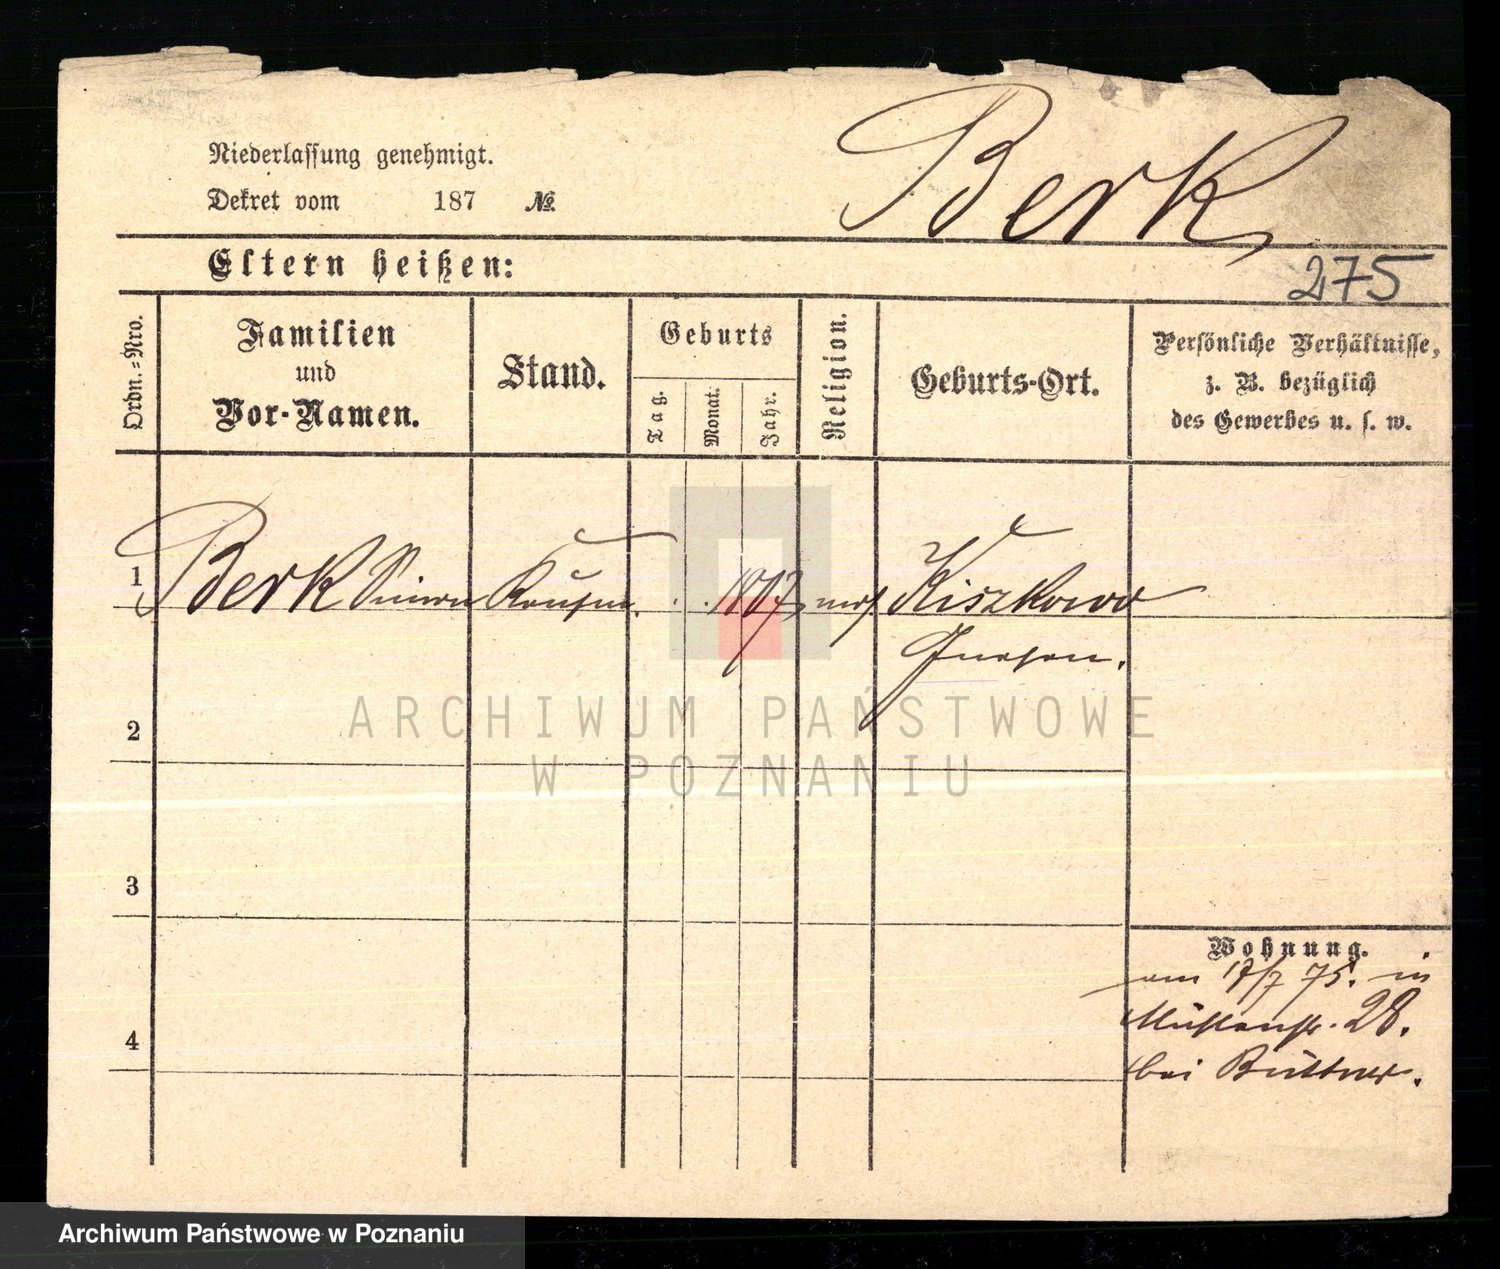 Berk
Niederlassung genehmigt.
Dekret vom 187 №.
Eltern heißen:
275
Ordn.-Nro.
Familien
und
Vor-Namen.
Stand.
Geburts
Tag.
Monat.
Jahr.
Religion.
Geburts-Ort.
Persönliche Verhältnisse,
z. B. bezüglich
des Gewerbes u. s. w.
1 Berk Simon Kaufm. mos. Kiszkowo
Gnesen.
2
3
4
Wohnung.
am 17/7 75. in
Mühlenstr. 28.
bei Büttner.
ARCHIWUM PAŃSTWOWE
W POZNANIU
Archiwum Państwowe w Poznaniu